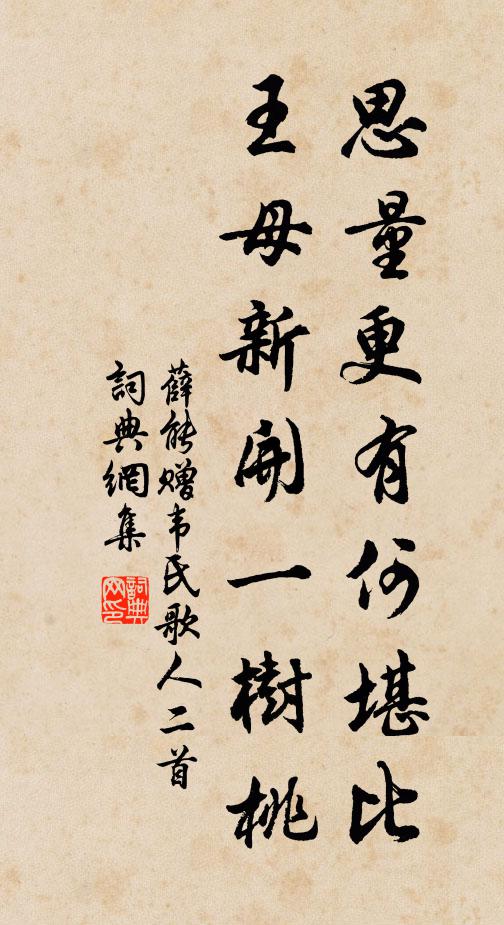 思量更有何堪比
王母新開一樹桃
薛能赠韦氏歌人二首
詞典網集
詞典
网印